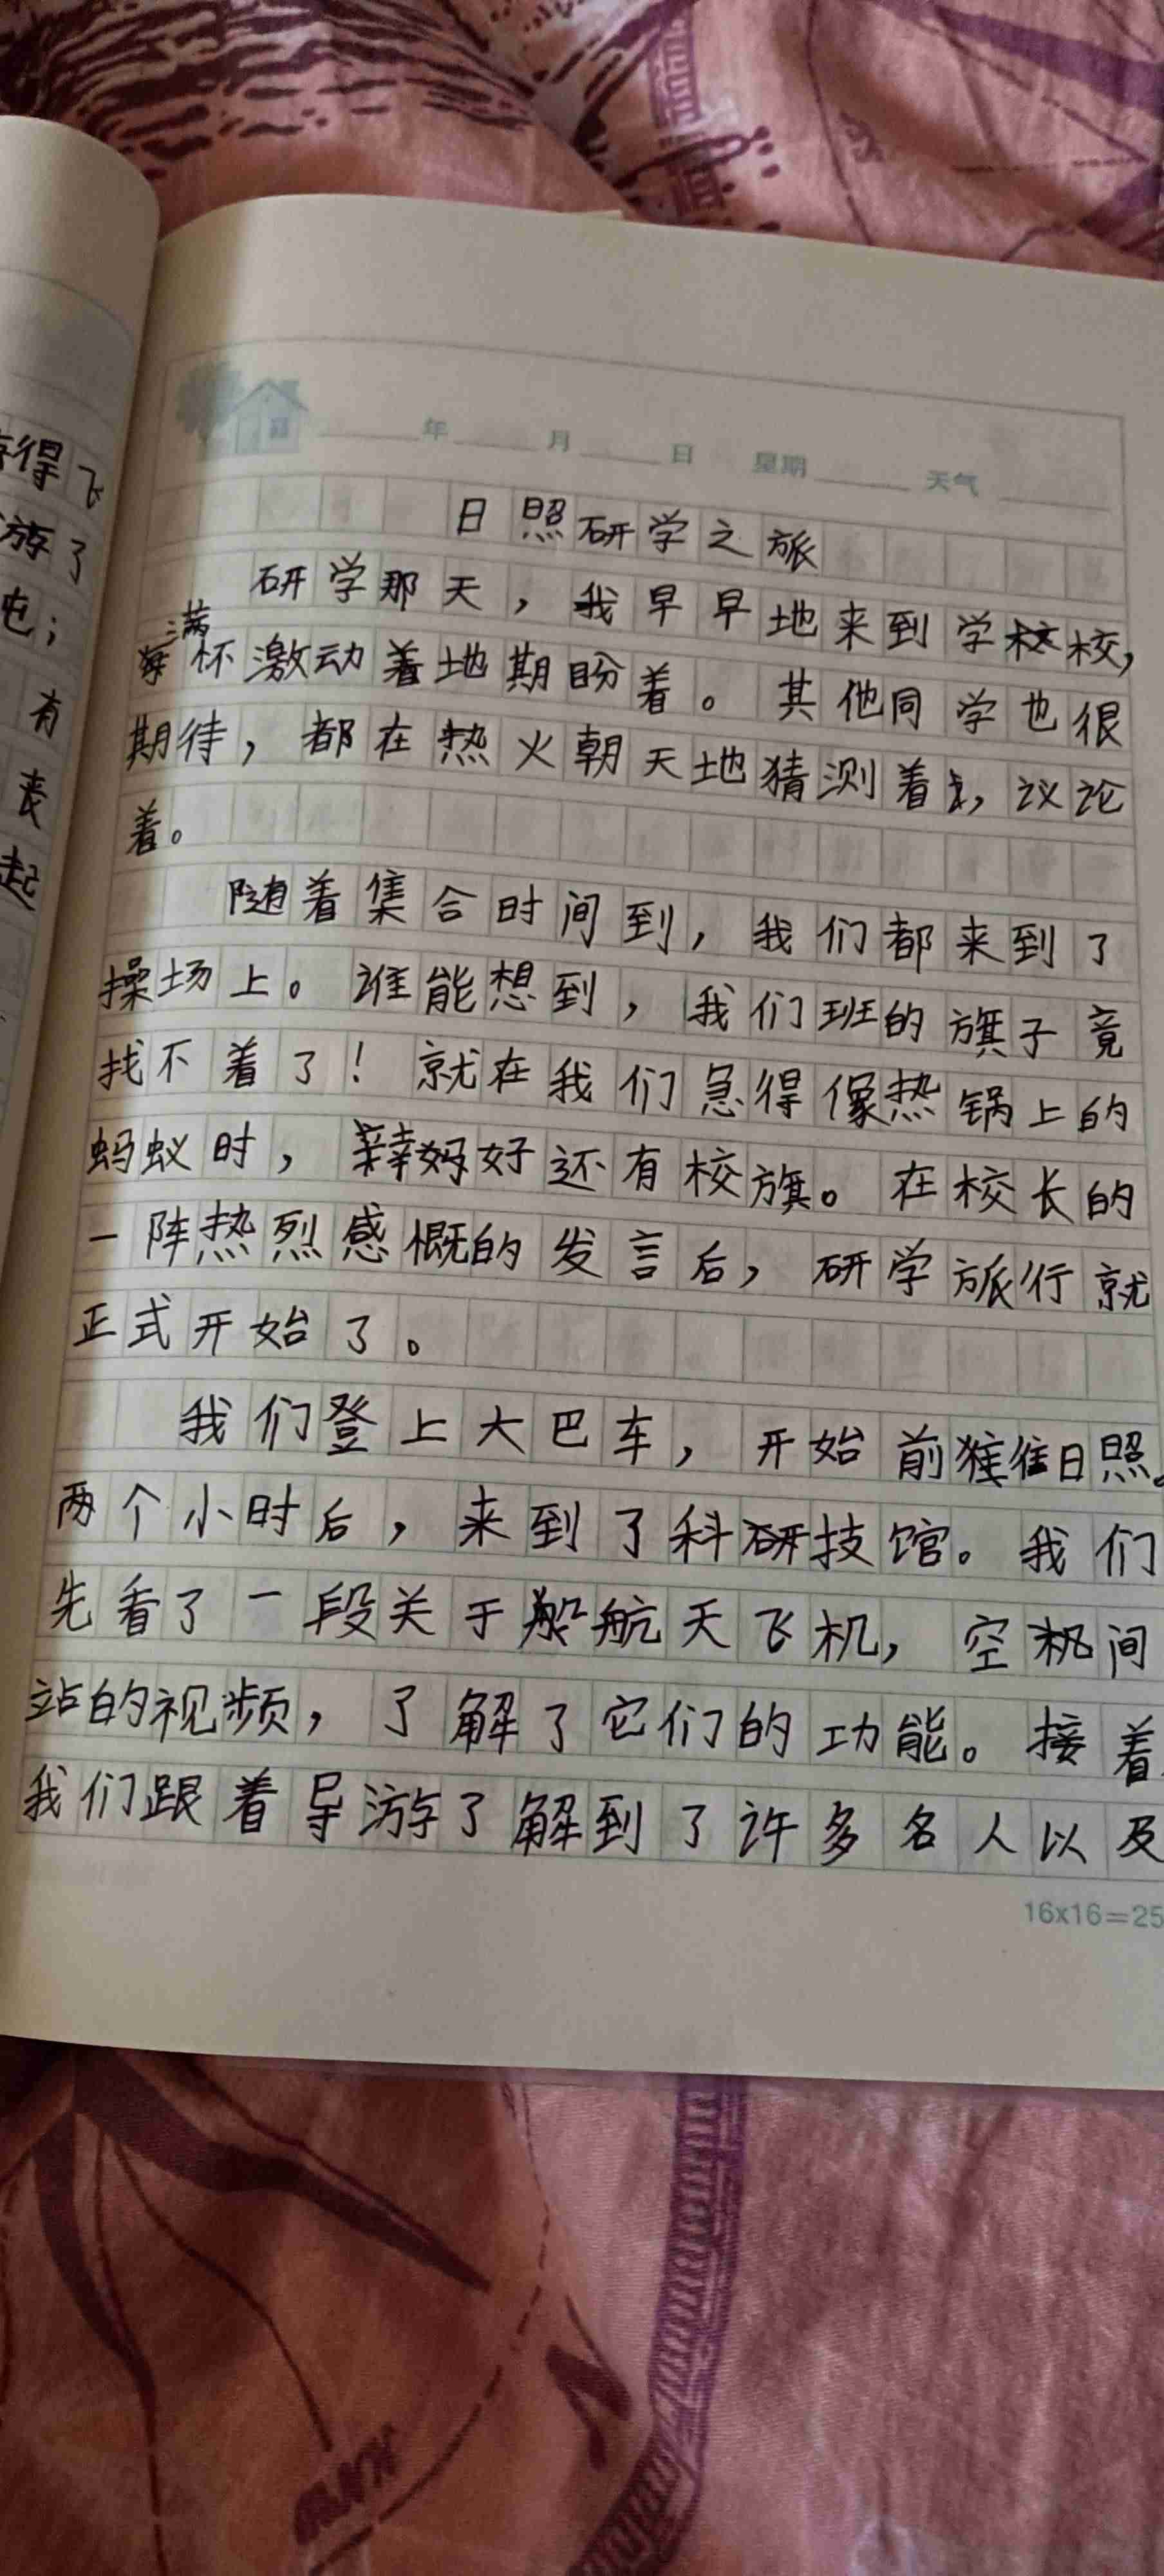 得飞
游了
也；
有
表
起
年 月 日 星期 天气
日照研学之旅
研学那天，我早早地来到学校，
满怀激动着地期盼着。其他同学也很
期待，都在热火朝天地猜测着，议论
着。
随着集合时间到，我们都来到了
操场上。谁能想到，我们班的旗子竟
找不着了！就在我们急得像热锅上的
蚂蚁时，幸好还有校旗。在校长的
一阵热烈感慨的发言后，研学旅行就
正式开始了。
我们登上大巴车，开始前往日照。
两个小时后，来到了科技馆。我们
先看了一段关于航天飞机，空间
站的视频，了解了它们的功能。接着
我们跟着导游了解到了许多名人以及
16x16=25